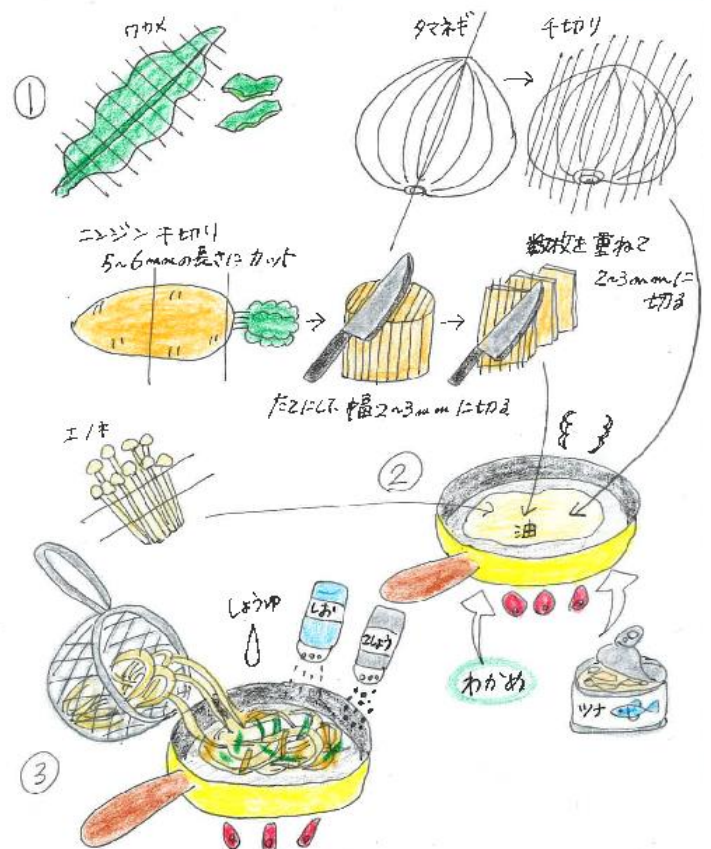 ①
ワカメ
タマネギ
千切り
ニンジン 千切り
5~6mmの長さにカット
数枚を重ねて
2~3mmに
切る
たてにして 幅2~3mmに切る
エノキ
②
油
しょうゆ
しお
こしょう
わかめ
ツナ
③